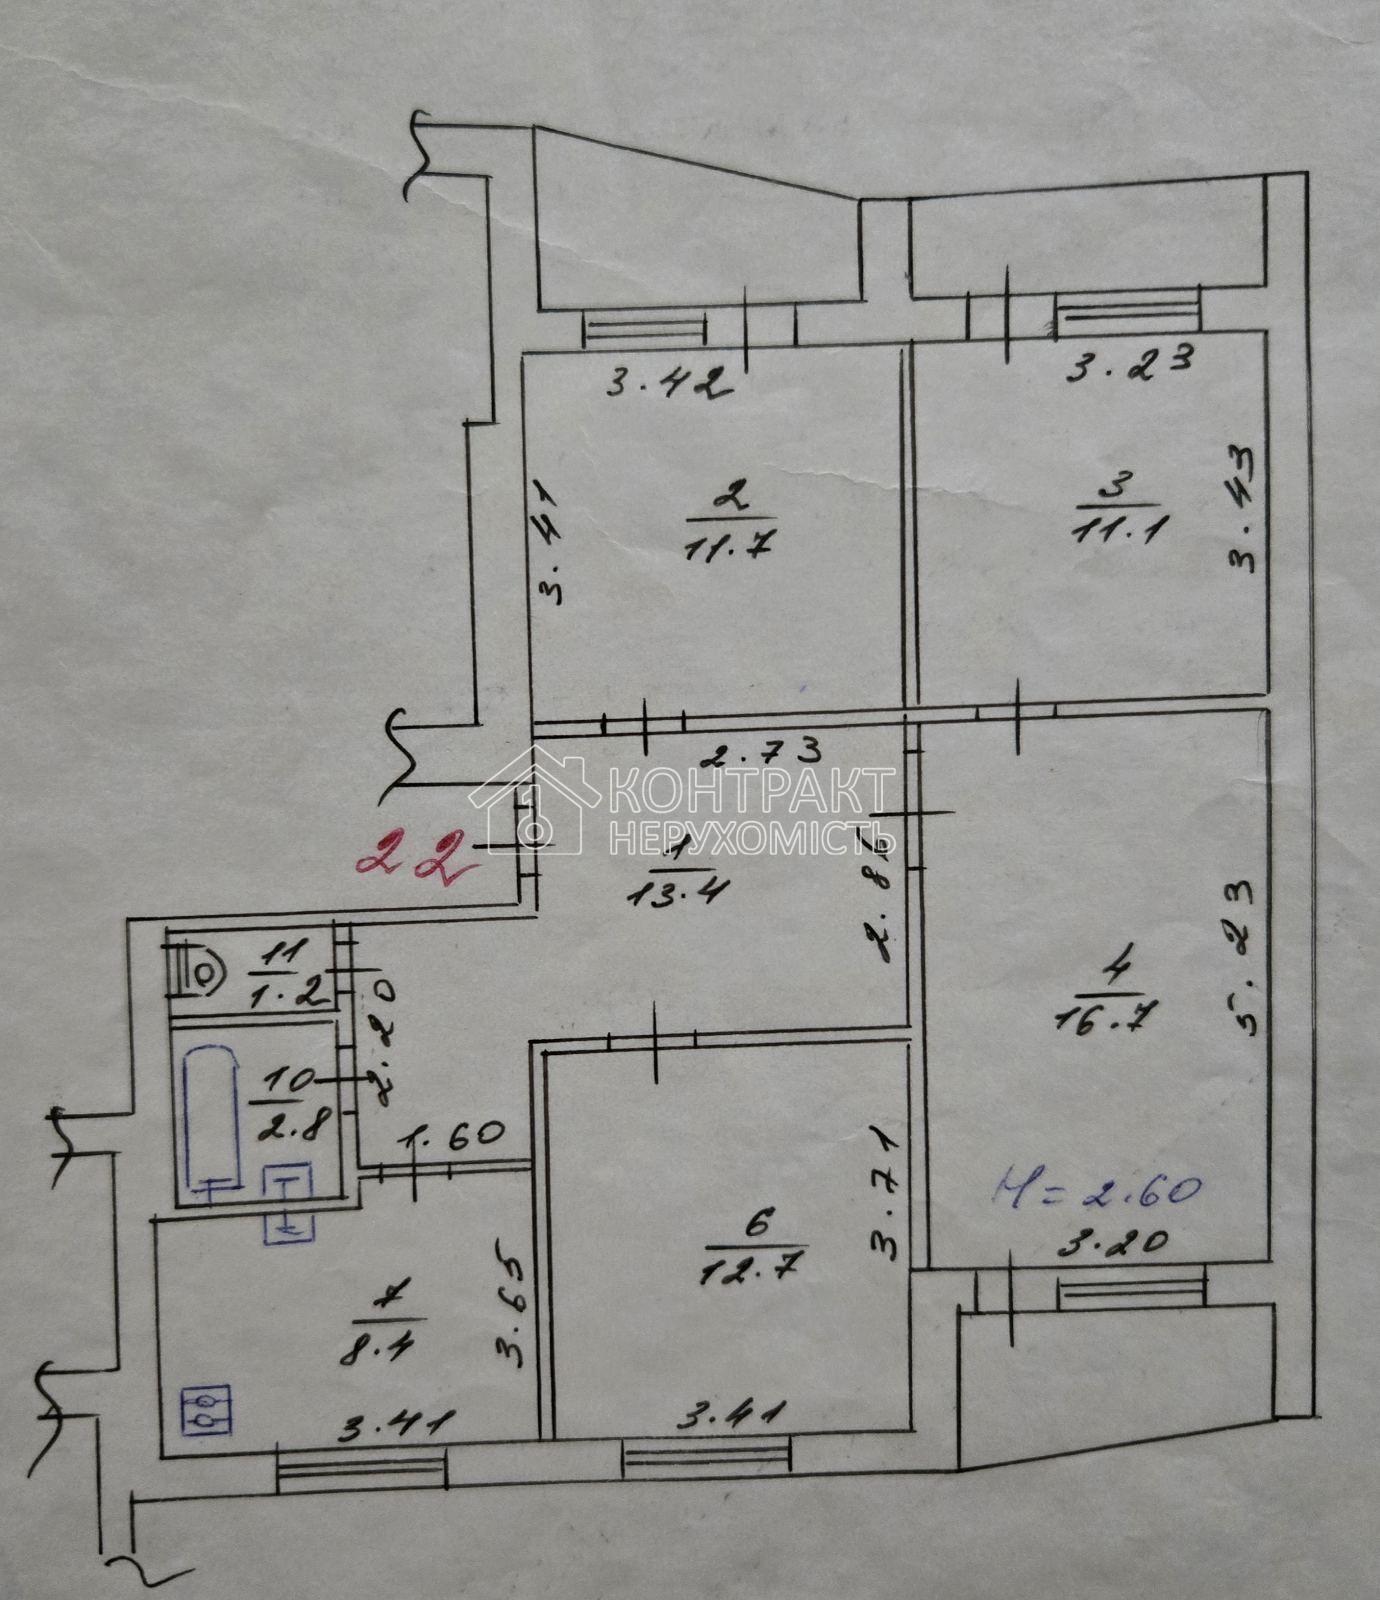 3.42
3.23
3.41
2
11.7
3
11.1
3.43
2.73
КОНТРАКТ
НЕРУХОМІСТЬ
22
1
13.4
2.86
11
1.2
2.20
4
16.7
5.23
10
2.8
1.60
3.71
H = 2.60
3.20
6
12.7
7
8.4
3.65
3.41
3.41